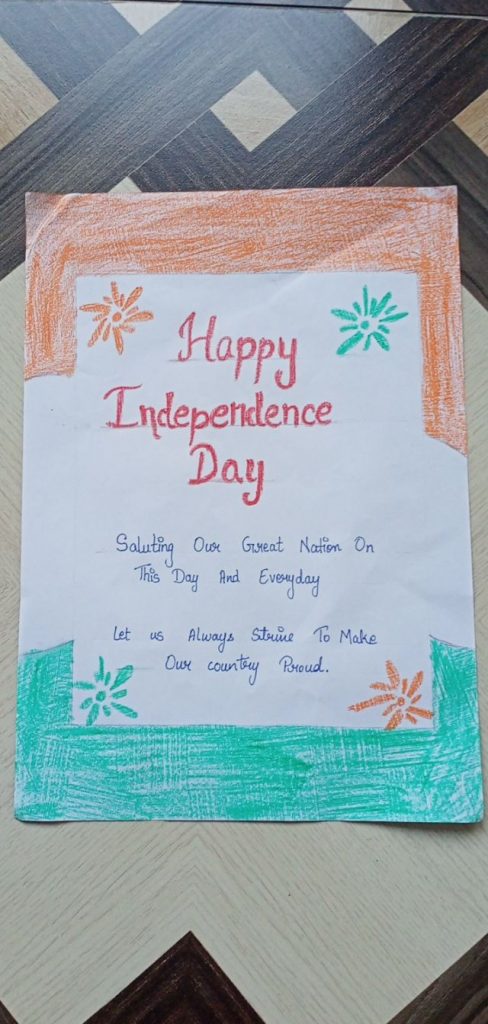 Happy
Independence
Day
Saluting Our Great Nation On
This Day And Everyday
Let us Always Strive To Make
Our country Proud.